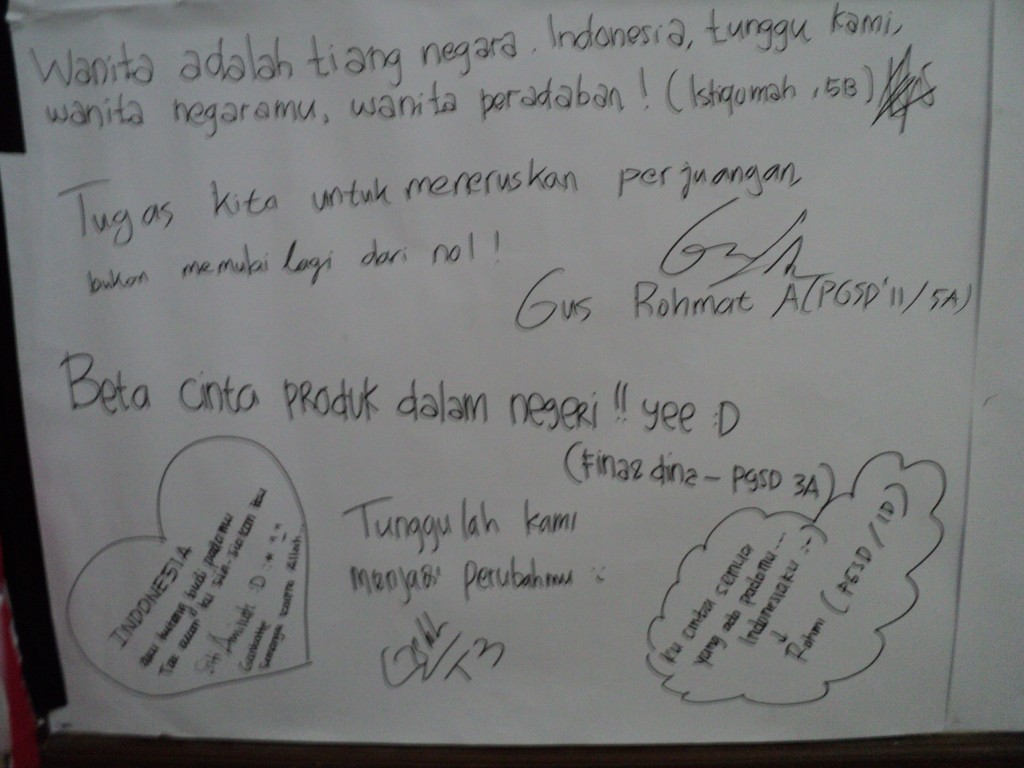 Wanita adalah tiang negara. Indonesia, tunggu kami,
wanita negaramu, wanita peradaban! (Istiqomah, 5B)
Tugas kita untuk meneruskan perjuangan,
bukan memulai lagi dari nol!
Gus Rohmat A (PGSD'11/5A)
Beta cinta produk dalam negeri!! yee :D
(Finas dina - PGSD 3A)
Tunggulah kami
menjadi perubahmu :
INDONESIA
aku hutang budi padamu
Tak akan ku sia-siakan kau
Siti :D :*
Semoga Allah...
Ku cintai semua
yang ada padamu...
Indonesiaku :-)
Rahmi (PGSD/1D)